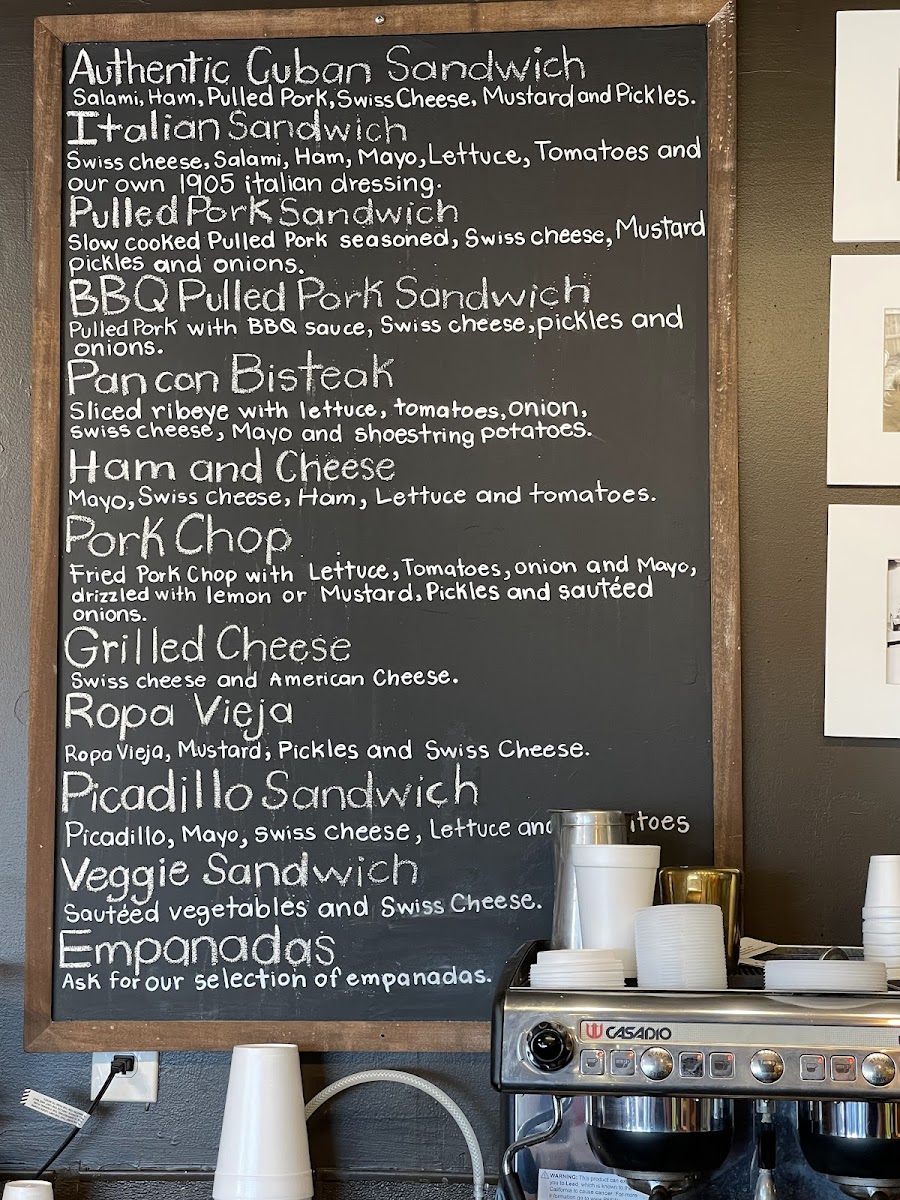 Authentic Cuban Sandwich
Salami, Ham, Pulled Pork, Swiss Cheese, Mustard and Pickles.
Italian Sandwich
Swiss cheese, Salami, Ham, Mayo, Lettuce, Tomatoes and
our own 1905 italian dressing.
Pulled Pork Sandwich
Slow cooked Pulled Pork seasoned, Swiss cheese, Mustard
pickles and onions.
BBQ Pulled Pork Sandwich
Pulled Pork with BBQ sauce, Swiss cheese, pickles and
onions.
Pan con Bisteak
Sliced ribeye with lettuce, tomatoes, onion,
swiss cheese, Mayo and shoestring potatoes.
Ham and Cheese
Mayo, Swiss cheese, Ham, Lettuce and tomatoes.
Pork Chop
Fried Pork Chop with Lettuce, Tomatoes, onion and Mayo,
drizzled with lemon or Mustard, Pickles and sautéed
onions.
Grilled Cheese
Swiss cheese and American Cheese.
Ropa Vieja
Ropa Vieja, Mustard, Pickles and Swiss Cheese.
Picadillo Sandwich
Picadillo, Mayo, swiss cheese, Lettuce and
Veggie Sandwich
Sautéed vegetables and Swiss Cheese.
Empanadas
Ask for our selection of empanadas.
CASADIO
WARNING: This product can